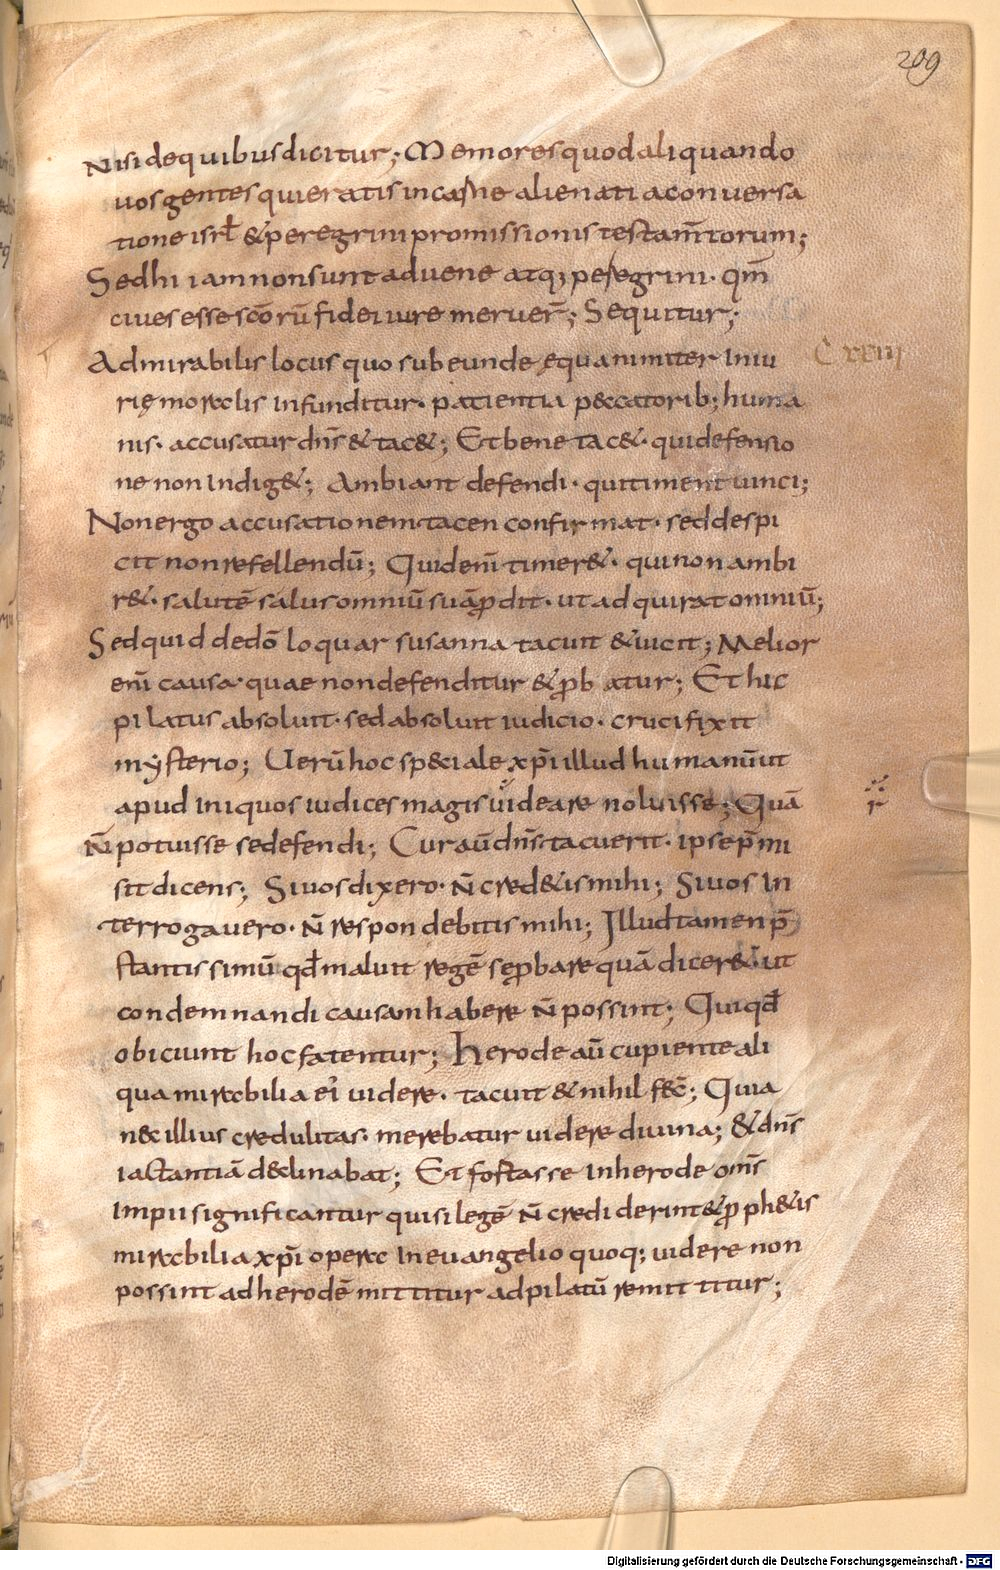 209
Nisi de quibus dicitur; Memores quod aliquando
uos gentes qui eratis in carne alienati a conuersa
tione isrł & peregrini promissionis testam̄torum;
Sed hi iam non sunt aduene atq; peregrini· qm̄
ciues esse sc̄orū fidei iure meruer̄; Sequitur;
Admirabilis locus quo subeunde equanimiter iniu
Cxxiii
rię moralis infunditur· patientia peccatorib; huma
nis· accusatur dn̄s & tac&; Et bene tac&· qui defensio
ne non indig&; Ambiant defendi· qui timent uinci;
Non ergo accusationem tacen confirmat· sed despi
cit non refellendū; Quid enī timer&· qui non ambi
r&· salutē salus omniū suā ꝓdit· ut adquirat omniū;
Sed quid de dō loquar susanna tacuit & uicit; Melior
enī causa· quae non defenditur & ꝓbatur; Et hic
pilatus absoluit· sed absoluit iudicio· crucifixit
mẏsterio; Uerū hoc speciale xp̄i illud humanū ut
apud iniquos iudices magis uideare noluisse; Quā
n̄ potuisse se defendi; Cur aū dn̄s tacuerit· ipse p̄mi
sit dicens; Si uos dixero· n̄ cred&is mihi; Si uos in
terrogauero· n̄ respondebitis mihi; Illud tamen p̄
stantissimū qđ maluit regē se ꝓbare quā dicer&· ut
condemnandi causam habere n̄ possint; Qui qđ
obiciunt hoc fatentur; Herode aū cupiente ali
qua mirabilia ei uidere· tacuit & nihil fec̄; Quia
nec illius credulitas· merebatur uidere diuina; & dn̄s
iactantiā declinabat; Et fortasse in herode om̄s
impii significantur qui si legē n̄ crediderint & ꝓph&is
mirabilia xp̄i opera in euangelio quoq; uidere non
possint ad herodē mittitur ad pilatū remittitur;
Digitalisierung gefördert durch die Deutsche Forschungsgemeinschaft - DFG